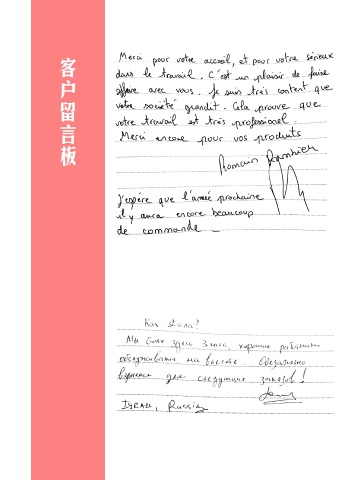 客户留言板
Merci pour votre accueil, et pour votre sérieux
dans le travail. C'est un plaisir de faire
affaire avec vous. Je suis très content que
votre société grandit. Cela prouve que
votre travail est très professionel.
Merci encore pour vos produits
Romain
J'espère que l'année prochaine
il y aura encore beaucoup
de commande
Как дела?
Мы были здесь 2 часа, хорошие работники
обслуживание на высоте. Обязательно
вернемся для следующих заказов!
Russia